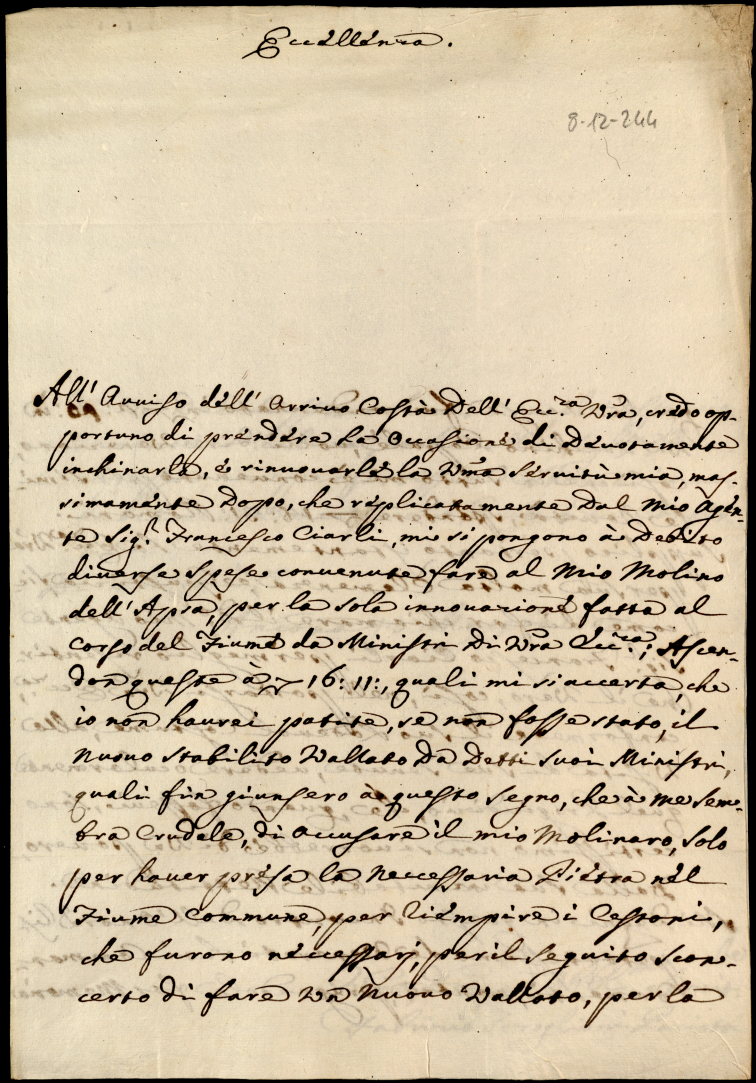 Eccellenza.
8-12-244
All' Avviso dell' Arrivo Costà Dell' Ecc.ᶻᵃ Vr̃a, credo op-
portuno di prendere La Occasione di Devotamente
inchinarla, è rinuovarle la Vm̃a Servitù mia, mas-
simamente Dopo, che replicatamente Dal Mio Agen-
te Sig.ʳ Francesco Ciarli, mi si pongono à Debito
diverse Spese convenute fare al Mio Molino
dell' Apra, per la sola innovazione fatta al
corso del Fiume da Ministri Di Vr̃a Ecc.ᶻᵃ; Ascen-
don queste à 16: 11:, quali mi si accerta che
io non haurei patite, se non fosse stato, il
nuovo stabilito Vallato Da Detti suoi Ministri,
quali fin giunsero à questo Segno, che à me sem-
bra Crudele, di accusare il mio Molinaro, solo
per haver presa la Neccessaria Pietra nel
Fiume Commune, per riempire i Cestoni,
che furono neccessarj, per il Seguito scon-
certo di fare Un Nuovo Vallato, per la